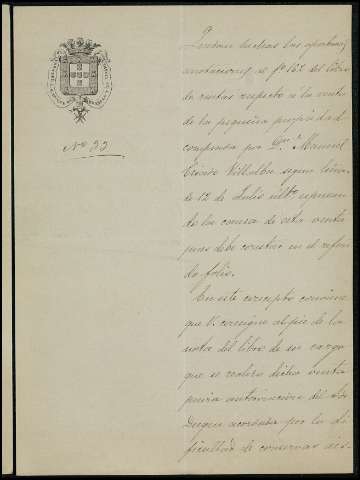 Nº 33
hechas las oportunas
anotaciones al fº 162 del libro
de ventas respecto á la venta
de la pequeña propiedad
comprada por Dn. Manuel
Villalba, segun
de 12 de Julio ultº
la causa de esta venta
pues debe constar en el referi
do folio.
En este concepto conviene
que V. consigne al pie de la
nota del libro de su cargo
que se realizó dicha venta
prévia autorizacion del Sor
Duque acordada por la di
ficultad de conservar